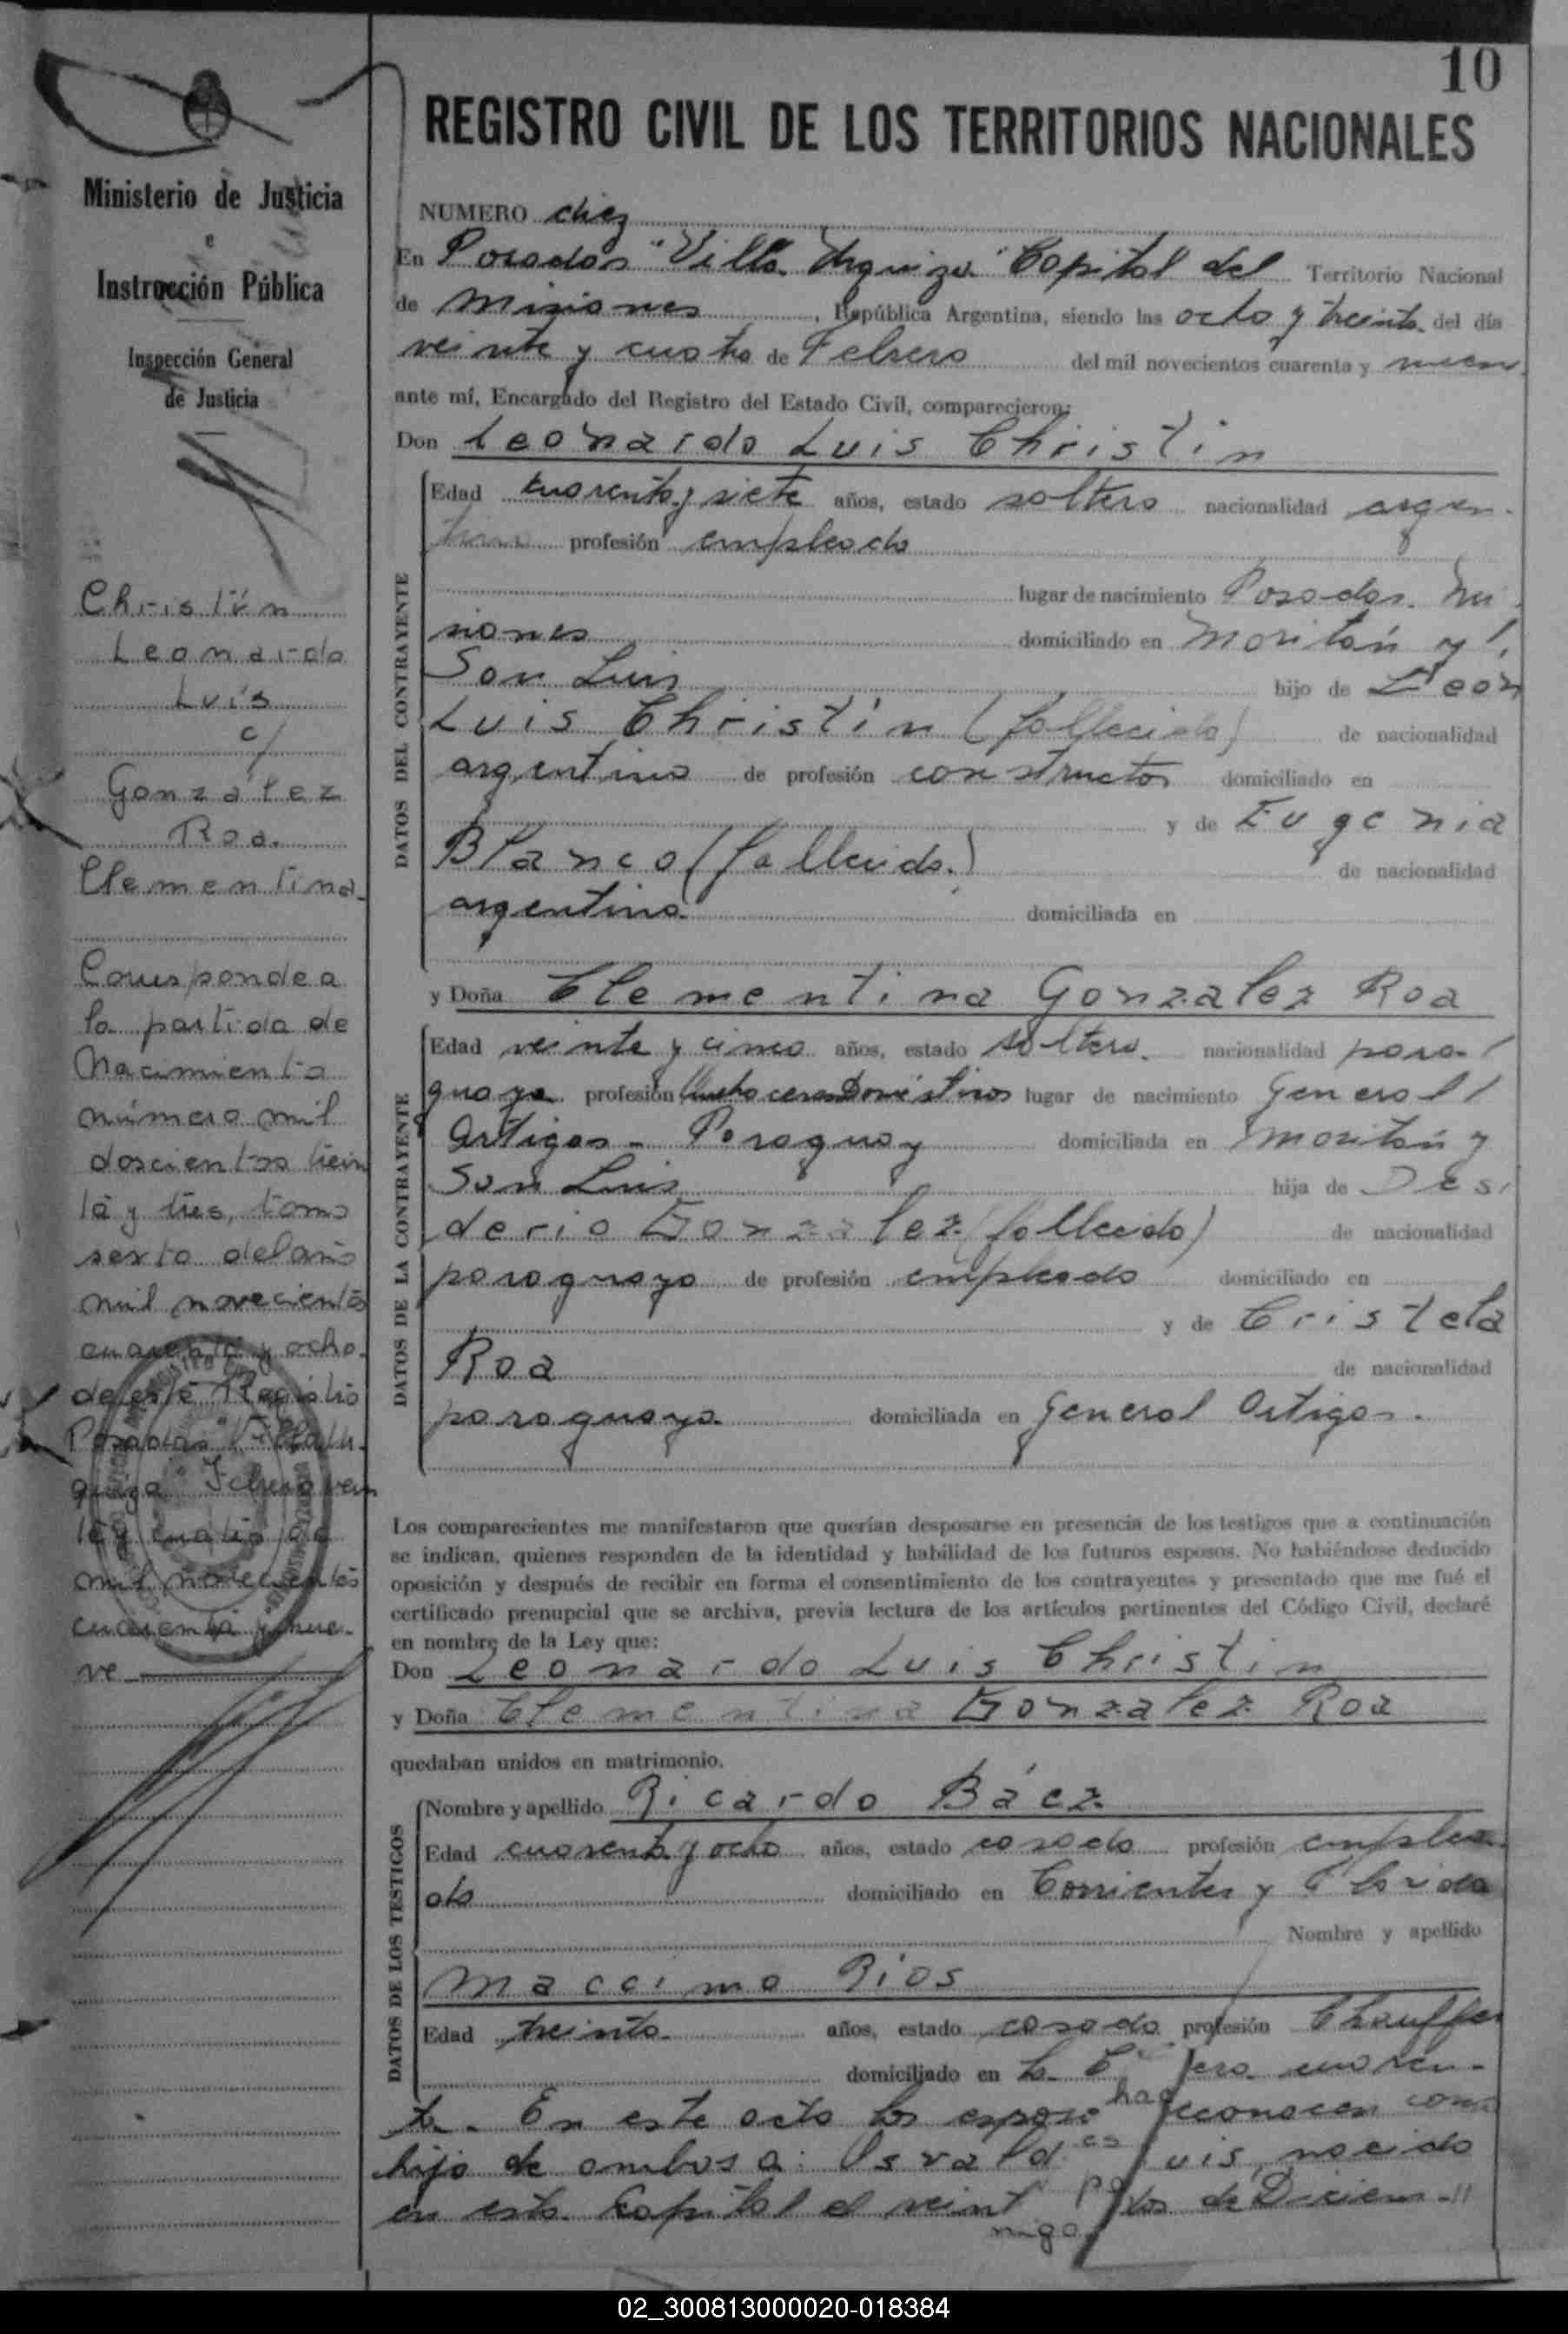 10
REGISTRO CIVIL DE LOS TERRITORIOS NACIONALES
Ministerio de Justicia
e
Instrucción Pública
Inspección General
de Justicia
Christín
Leonardo
Luis
c/
González
Roa
Clementina
Corresponde a
la partida de
Nacimiento
número mil
doscientos trein
ta y tres, tomo
sexto del año
mil novecientos
cuarenta y ocho
de este Registro
Posadas Villa Ur
quiza Febrero vein
te y cuatro de
mil novecientos
cuarenta y nue-
ve
NUMERO diez
En Posadas "Villa Urquiza" Capital del Territorio Nacional
de Misiones, República Argentina, siendo las ocho y treinta del día
veinte y cuatro de Febrero del mil novecientos cuarenta y nueve
ante mí, Encargado del Registro del Estado Civil, comparecieron:
Don Leonardo Luis Christin
DATOS DEL CONTRAYENTE
Edad cuarenta y siete años, estado soltero nacionalidad argen-
tino profesión empleado
lugar de nacimiento Posadas. Mi
siones domiciliado en Moritán y
San Luis hijo de León
Luis Christín (fallecido) de nacionalidad
argentino de profesión constructor domiciliado en
y de Eugenia
Blanco (fallecida) de nacionalidad
argentina domiciliada en
y Doña Clementina Gonzalez Roa
DATOS DE LA CONTRAYENTE
Edad veinte y cinco años, estado soltera nacionalidad para-
guaya profesión lugar de nacimiento General
Artigas - Paraguay domiciliada en Moritán y
San Luis hija de Desi
derio Gonzalez (fallecido) de nacionalidad
paraguayo de profesión empleado domiciliado en
y de Cristela
Roa de nacionalidad
paraguaya domiciliada en General Artigas.
Los comparecientes me manifestaron que querían desposarse en presencia de los testigos que a continuación
se indican, quienes responden de la identidad y habilidad de los futuros esposos. No habiéndose deducido
oposición y después de recibir en forma el consentimiento de los contrayentes y presentado que me fué el
certificado prenupcial que se archiva, previa lectura de los artículos pertinentes del Código Civil, declaré
en nombre de la Ley que:
Don Leonardo Luis Christin
y Doña Clementina Gonzalez Roa
quedaban unidos en matrimonio.
DATOS DE LOS TESTIGOS
Nombre y apellido Ricardo Báez
Edad cuarenta y ocho años, estado casado profesión emplea
do domiciliado en Corrientes y Florida
Nombre y apellido
Maccimo Ríos
Edad treinta años, estado casado profesión Chauffer
domiciliado en La cuaren-
ta. En este acto los esposos reconocen como
hijo de ambos a: Osvald uis, nacido
en esta Capital el veint de Diciem-
02_300813000020-018384